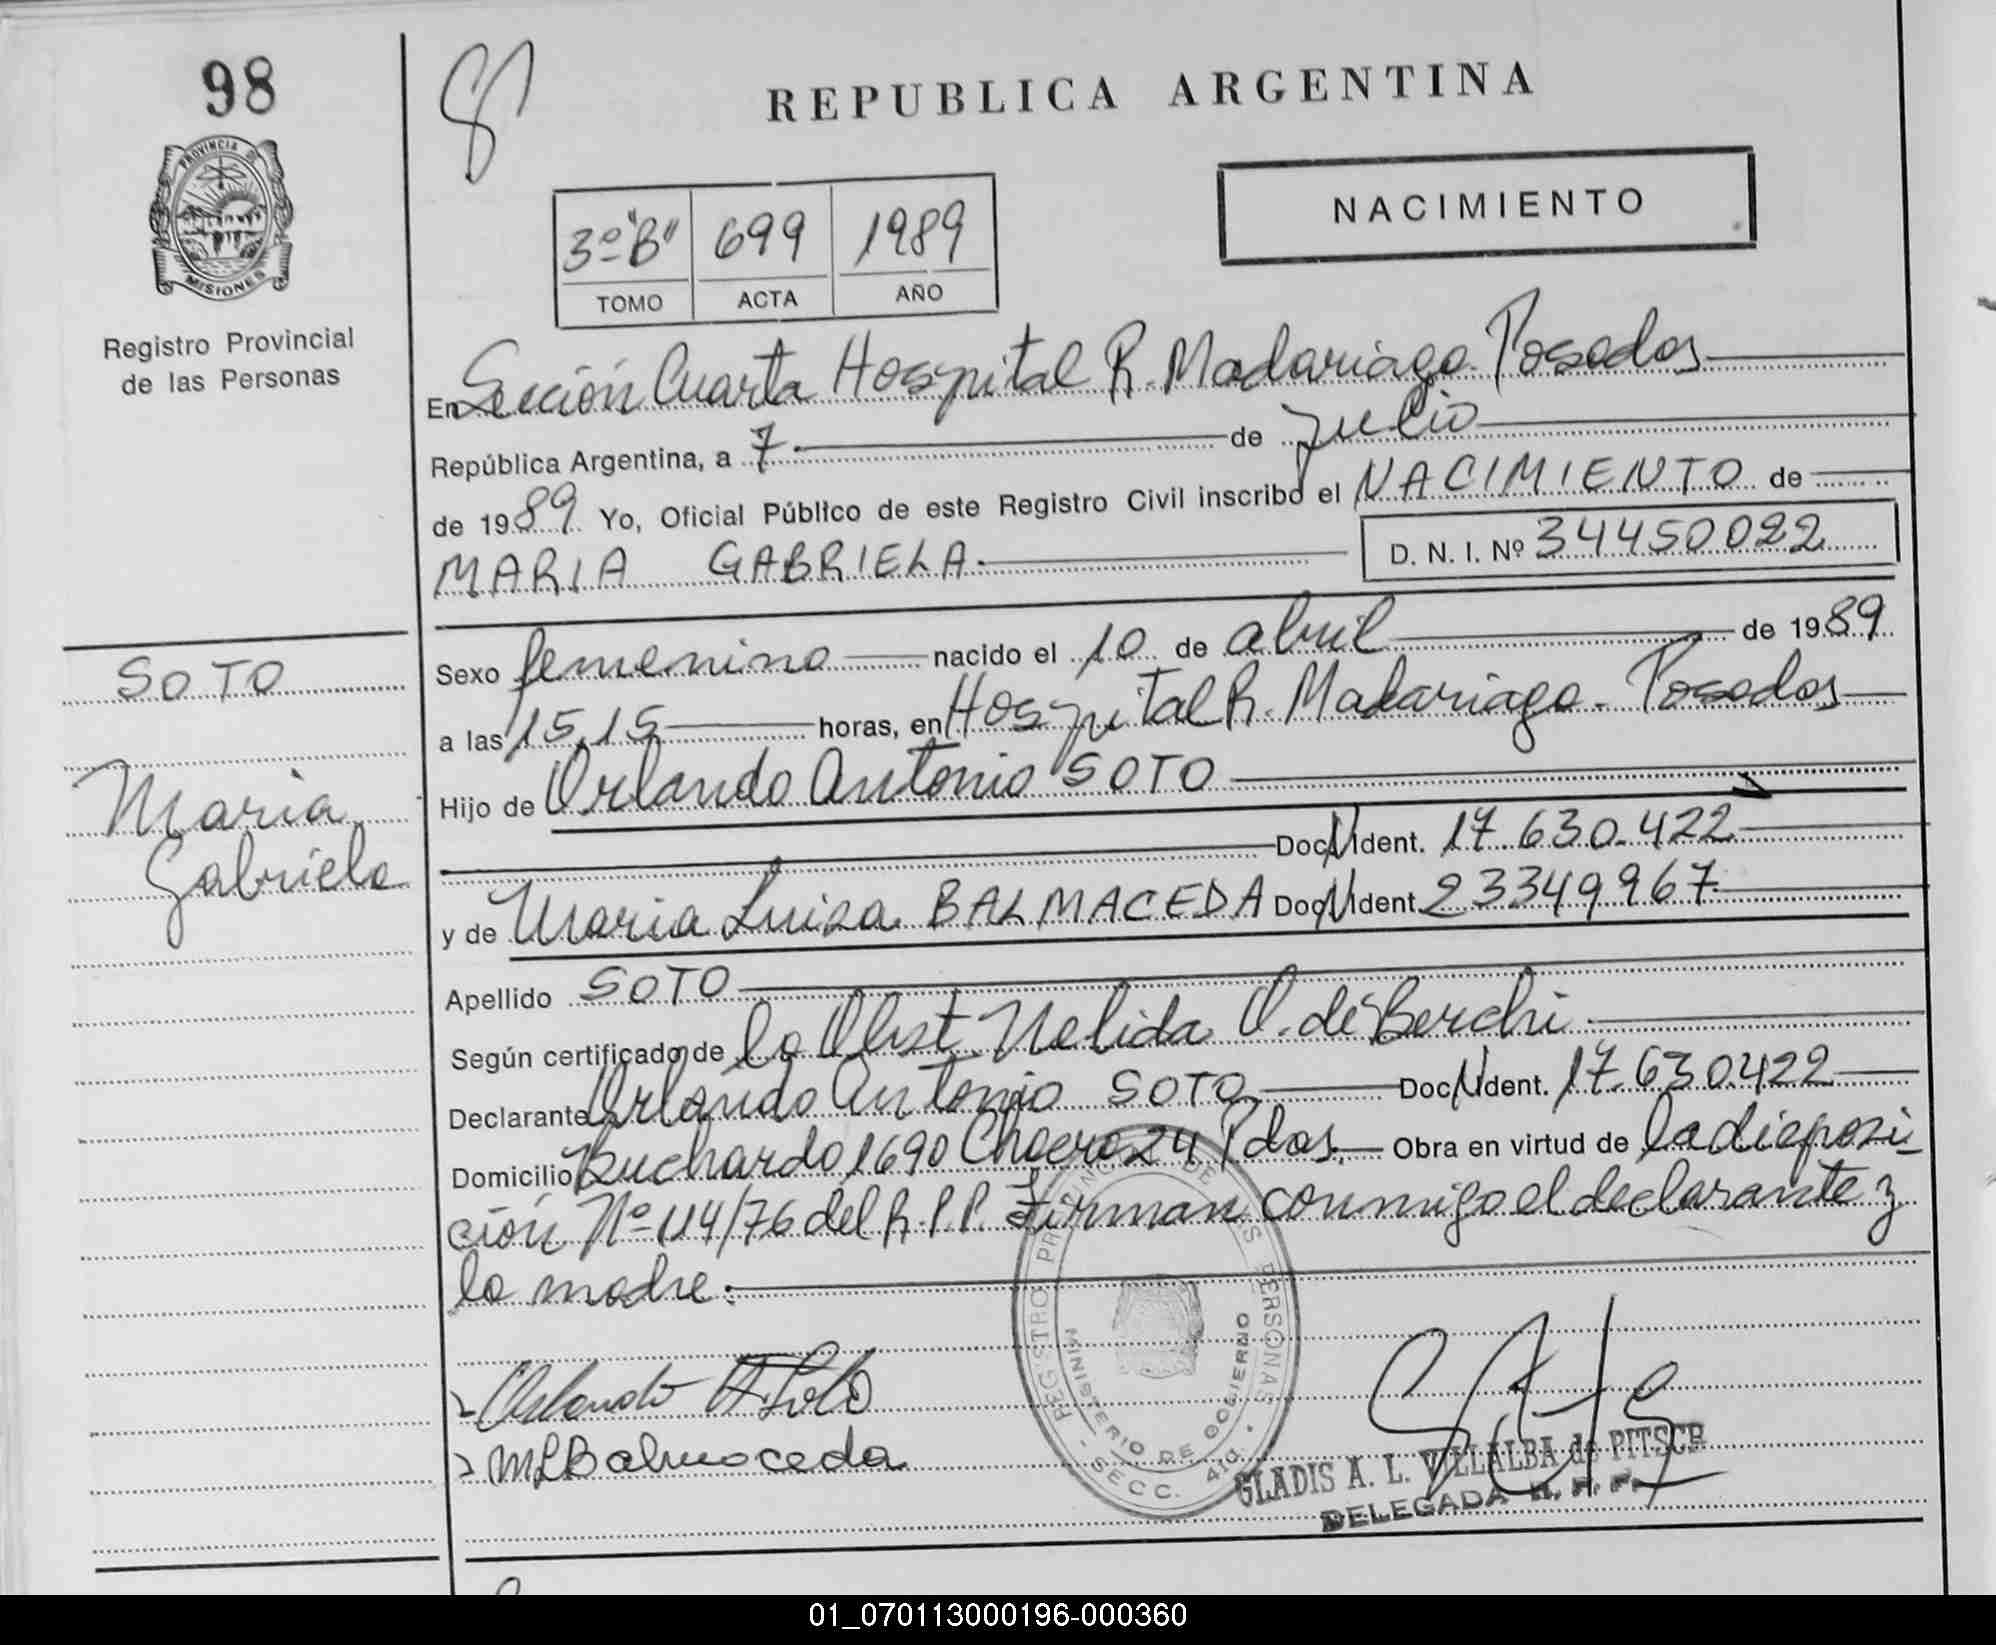 98
REPUBLICA ARGENTINA
PROVINCIA DE
MISIONES
Registro Provincial
de las Personas
3º "B" 699 1989
TOMO ACTA AÑO
NACIMIENTO
En Sección Cuarta Hospital R. Madariaga. Posadas
República Argentina, a 7 de julio
de 1989 Yo, Oficial Público de este Registro Civil inscribo el NACIMIENTO de
MARIA GABRIELA. D. N. I. Nº 34450022
SOTO
Maria
Gabriela
Sexo femenino nacido el 10 de abril de 1989
a las 15,15 horas, en Hospital R. Madariaga. Posadas
Hijo de Orlando Antonio SOTO
Doc. N Ident. 17.630.422
y de Maria Luisa BALMACEDA Doc. N Ident. 23349967
Apellido SOTO
Según certificado de la Obst. Nelida O. de Berchi
Declarante Orlando Antonio SOTO Doc. N Ident. 17.630422
Domicilio Buchardo 1690 Chacra 24 Pdas. Obra en virtud de la disposi-
ción Nº 114/76 del R.P.P. Firman conmigo el declarante y
la madre.
Orlando A. Soto
MLBalmaceda
REGISTRO PROVINCIAL DE LAS PERSONAS
MINISTERIO DE GOBIERNO
SECC. 4ta.
GLADIS A. L. VILLALBA de PITSCH
DELEGADA
01_070113000196-000360